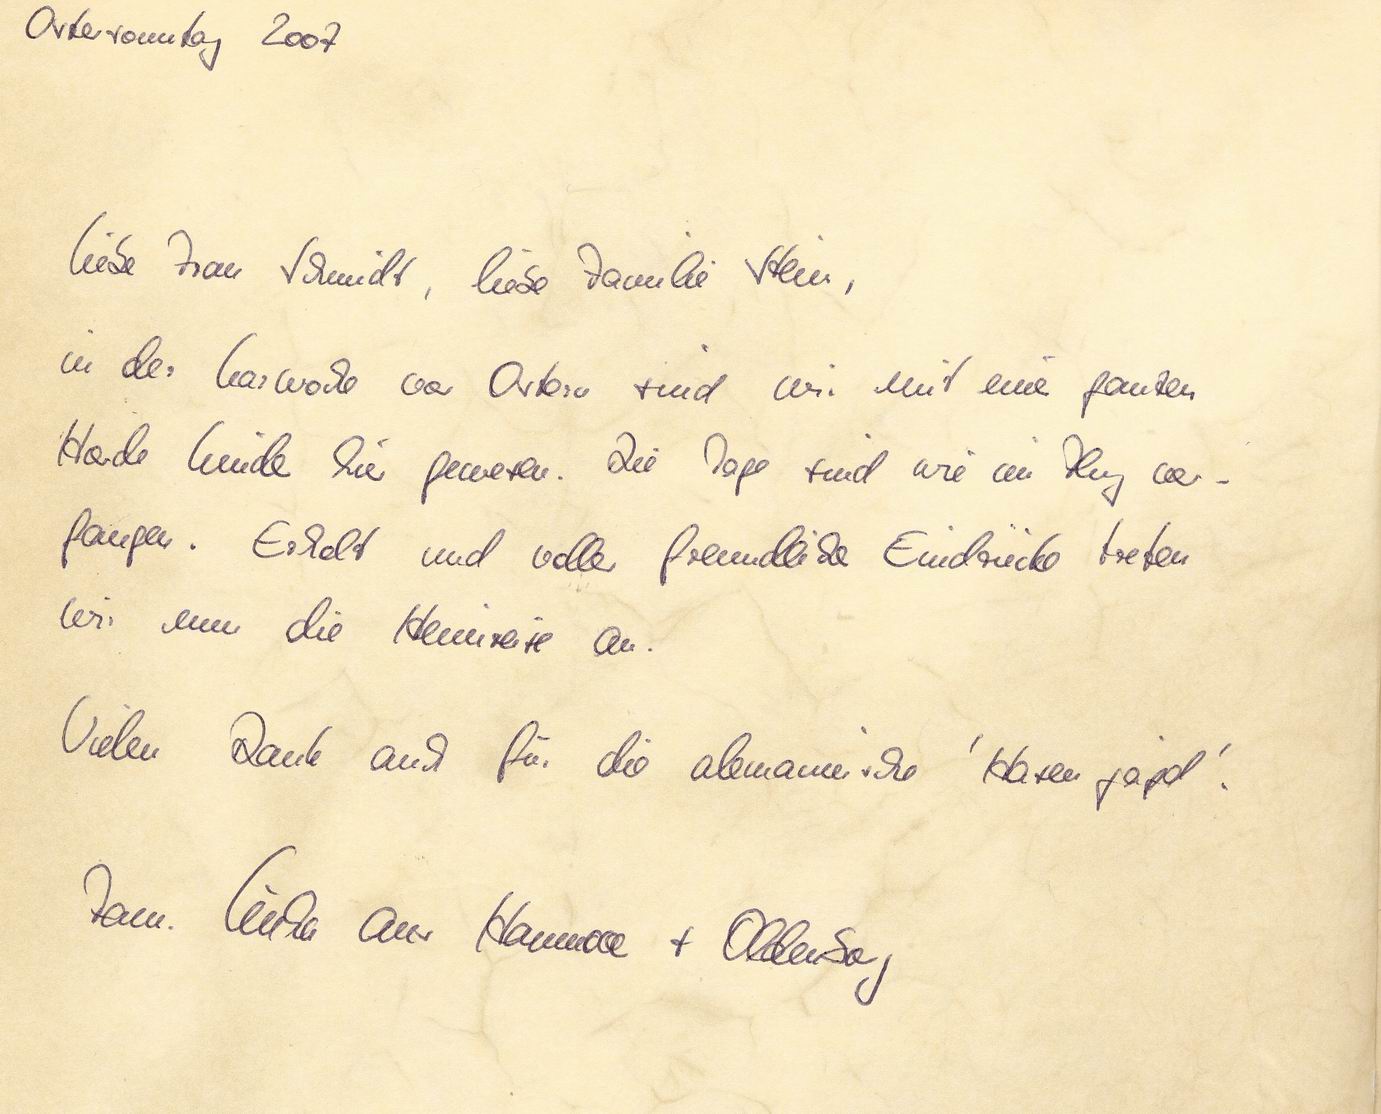 Ostersonntag 2007
Liebe Frau Schmidt, liebe Familie Stein,
in der Karwoche vor Ostern sind wir mit einer ganzen
Horde Kinder hier gewesen. Die Tage sind wie im Flug ver-
gangen. Erholt und voller freundlicher Eindrücke treten
wir nun die Heimreise an.
Vielen Dank auch für die alemannische 'Hasenjagd'.
Fam. aus Hannover + Oldenburg